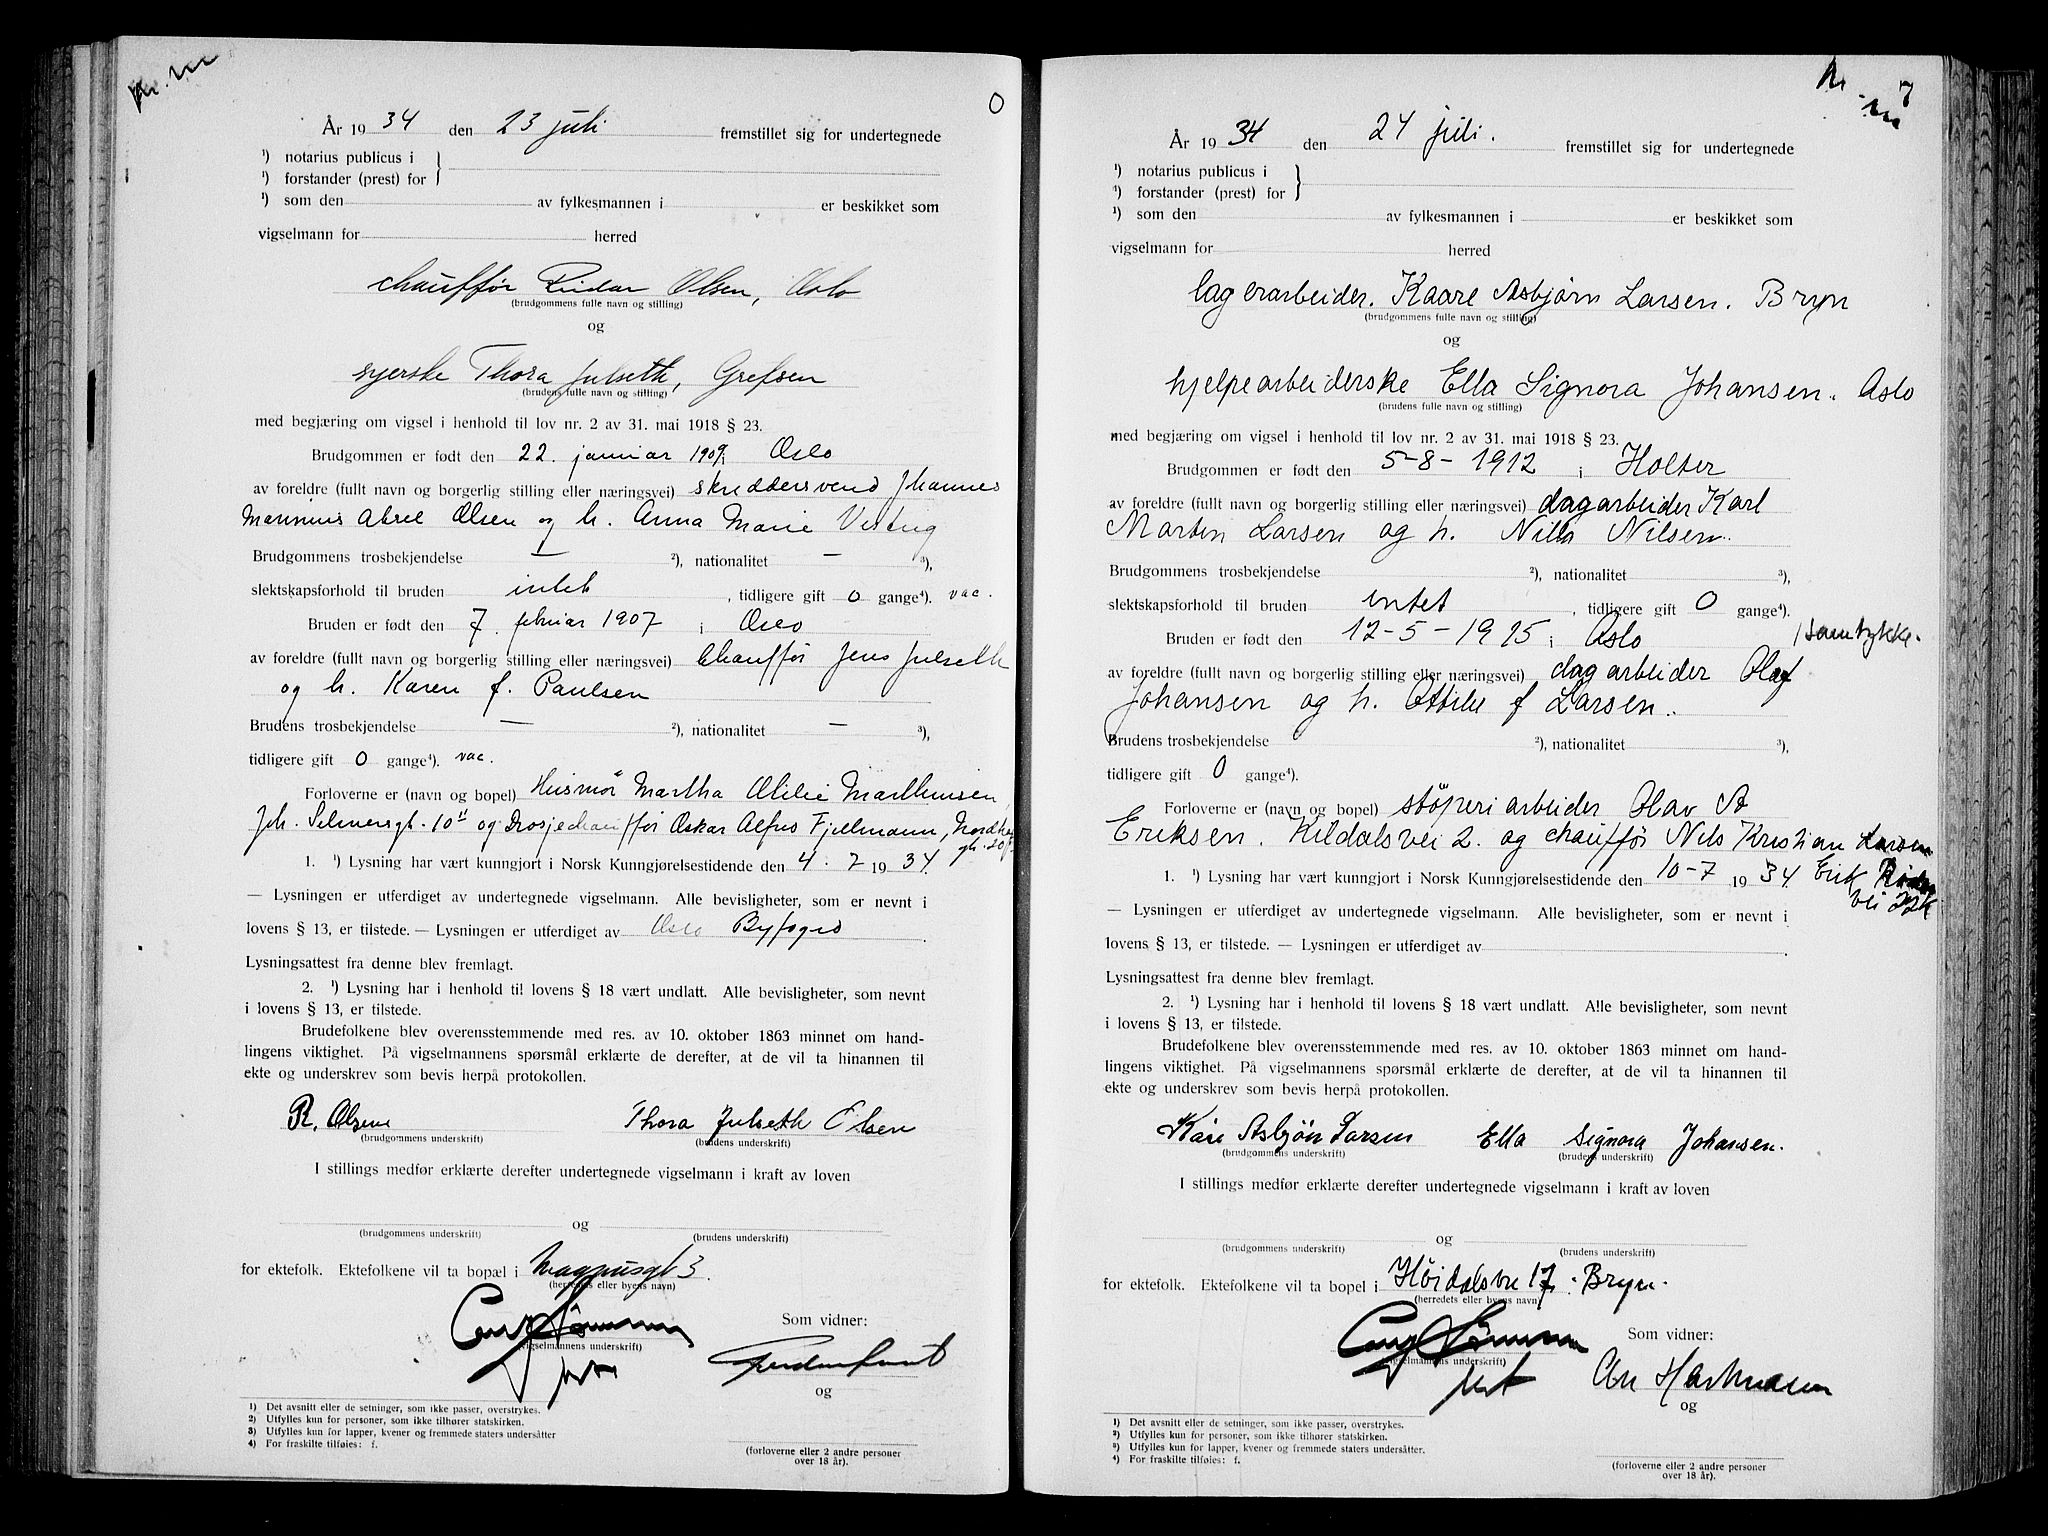 0
År 1934 den 23 juli fremstillet sig for undertegnede
¹) notarius publicus i
¹) forstander (prest) for
¹) som den av fylkesmannen i er beskikket som
vigselmann for herred
chauffør Reidar Olsen, Oslo
(brudgommens fulle navn og stilling)
og
syerske Thora Julseth, Grefsen
(brudens fulle navn og stilling)
med begjæring om vigsel i henhold til lov nr. 2 av 31. mai 1918 § 23.
Brudgommen er født den 22. januar 1909 i Oslo
av foreldre (fullt navn og borgerlig stilling eller næringsvei) skreddersvend Johannes
Marinius Aksel Olsen og h. Anna Marie
Brudgommens trosbekjendelse — ²), nationalitet — ³),
slektskapsforhold til bruden intet, tidligere gift 0 gange⁴). vac.
Bruden er født den 7. februar 1907 i Oslo
av foreldre (fullt navn og borgerlig stilling eller næringsvei) Chauffør Jens Julseth
og h. Karen f. Paulsen
Brudens trosbekjendelse — ²), nationalitet — ³),
tidligere gift 0 gange⁴). vac.
Forloverne er (navn og bopel) Husmor Martha Otilie Marthinsen,
Joh. Selmersgt. 10 II og Drosjechauffør Oskar Alfus Fjellmann,
1. ¹) Lysning har vært kunngjort i Norsk Kunngjørelsestidende den 4. 7 1934.
— Lysningen er utferdiget av undertegnede vigselmann. Alle bevisligheter, som er nevnt i
lovens § 13, er tilstede. — Lysningen er utferdiget av Oslo Byfogd.
Lysningsattest fra denne blev fremlagt.
2. ¹) Lysning har i henhold til lovens § 18 vært undlatt. Alle bevisligheter, som nevnt
i lovens § 13, er tilstede.
Brudefolkene blev overensstemmende med res. av 10. oktober 1863 minnet om hand-
lingens viktighet. På vigselmannens spørsmål erklærte de derefter, at de vil ta hinannen til
ekte og underskrev som bevis herpå protokollen.
R. Olsen Thora Julseth Olsen
(brudgommens underskrift) (brudens underskrift)
I stillings medfør erklærte derefter undertegnede vigselmann i kraft av loven
og
(brudgommens underskrift) (brudens underskrift)
for ektefolk. Ektefolkene vil ta bopæl i Magnusgt 3.
(herredets eller byens navn)
Som vidner:
(vigselmannens underskrift)
og
¹) Det avsnitt eller de setninger, som ikke passer, overstrykes.
²) Utfylles kun for personer, som ikke tilhører statskirken.
³) Utfylles kun for lapper, kvener og fremmede staters undersåtter
⁴) For fraskilte tilføies: f.
(forloverne eller 2 andre personer
over 18 år).
7
År 1934 den 24 juli. fremstillet sig for undertegnede
¹) notarius publicus i
¹) forstander (prest) for
¹) som den av fylkesmannen i er beskikket som
vigselmann for herred
lagerarbeider. Kaare Asbjørn Larsen. Bryn
(brudgommens fulle navn og stilling)
og
hjelpearbeiderske Ella Signora Johansen. Oslo
(brudens fulle navn og stilling)
med begjæring om vigsel i henhold til lov nr. 2 av 31. mai 1918 § 23.
Brudgommen er født den 5-8-1912 i Holter
av foreldre (fullt navn og borgerlig stilling eller næringsvei) dagarbeider Karl
Martin Larsen og h. Nilla Nilsen.
Brudgommens trosbekjendelse ²), nationalitet ³),
slektskapsforhold til bruden intet, tidligere gift 0 gange⁴).
Bruden er født den 12-5-1915 i Oslo /samtykke.
av foreldre (fullt navn og borgerlig stilling eller næringsvei) dagarbeider Olaf
Johansen og h. Ottilie f Larsen.
Brudens trosbekjendelse ²), nationalitet ³),
tidligere gift 0 gange⁴).
Forloverne er (navn og bopel) støperiarbeider Olav A
Eriksen. Kildalsvei 2. og chauffør Nils Kristian Larsen
1. ¹) Lysning har vært kunngjort i Norsk Kunngjørelsestidende den 10-7 1934. Erik
vei
— Lysningen er utferdiget av undertegnede vigselmann. Alle bevisligheter, som er nevnt i
lovens § 13, er tilstede. — Lysningen er utferdiget av
Lysningsattest fra denne blev fremlagt.
2. ¹) Lysning har i henhold til lovens § 18 vært undlatt. Alle bevisligheter, som nevnt
i lovens § 13, er tilstede.
Brudefolkene blev overensstemmende med res. av 10. oktober 1863 minnet om hand-
lingens viktighet. På vigselmannens spørsmål erklærte de derefter, at de vil ta hinannen til
ekte og underskrev som bevis herpå protokollen.
Kåre Asbjørn Larsen Ella Signora Johansen.
(brudgommens underskrift) (brudens underskrift)
I stillings medfør erklærte derefter undertegnede vigselmann i kraft av loven
og
(brudgommens underskrift) (brudens underskrift)
for ektefolk. Ektefolkene vil ta bopel i Høidalsvei 17. Bryn.
(herredets eller byens navn)
Som vidner:
(vigselmannens underskrift)
og
¹) Det avsnitt eller de setninger, som ikke passer, overstrykes.
²) Utfylles kun for personer, som ikke tilhører statskirken.
³) Utfylles kun for lapper, kvener og fremmede staters undersåtter.
⁴) For fraskilte tilføies: f.
(forloverne eller 2 andre personer
over 18 år).